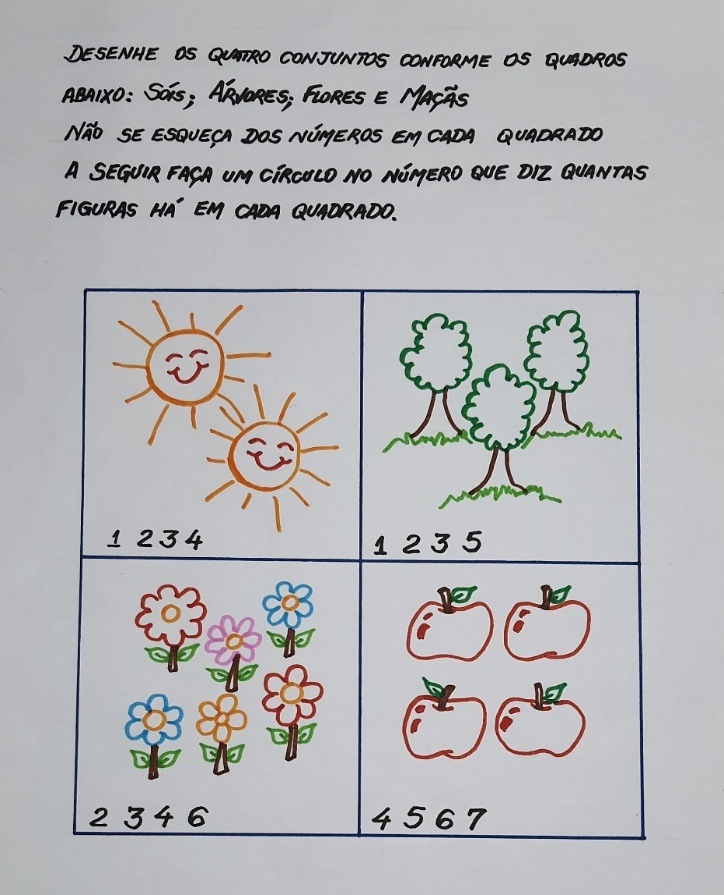 DESENHE OS QUATRO CONJUNTOS CONFORME OS QUADROS
ABAIXO: SÓIS; ÁRVORES; FLORES E MAÇÃS
NÃO SE ESQUEÇA DOS NÚMEROS EM CADA QUADRADO
A SEGUIR FAÇA UM CÍRCULO NO NÚMERO QUE DIZ QUANTAS
FIGURAS HÁ EM CADA QUADRADO.
1 2 3 4
1 2 3 5
2 3 4 6
4 5 6 7